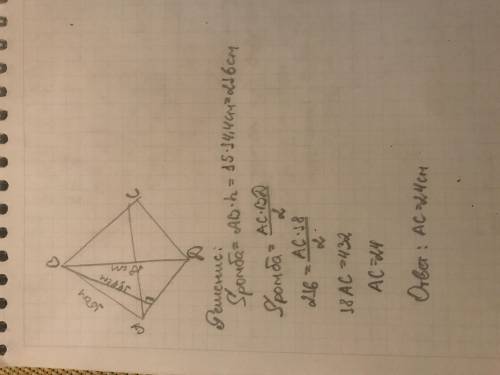 B
C
A
D
15см
14,4см
18см
h
Решение:
Sромба = AD·h = 15·14,4см = 216см
Sромба = AC·BD / 2
216 = AC·18 / 2
18AC = 432
AC = 24
Ответ: AC = 24см